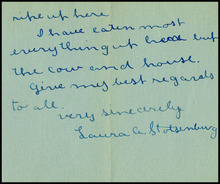 ripe up here
I have eaten most
everything up here but
the cow and house.
Give my best regards
to all.
very sincerely
Laura A. Stotsenburg